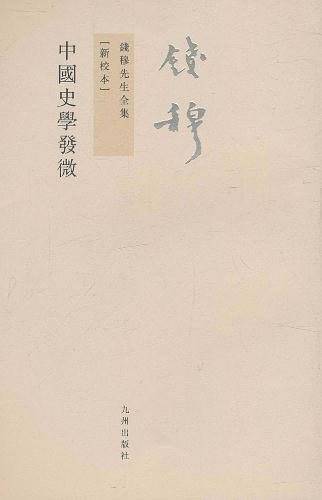 錢穆
錢穆先生全集
［新校本］
中國史學發微
九州出版社